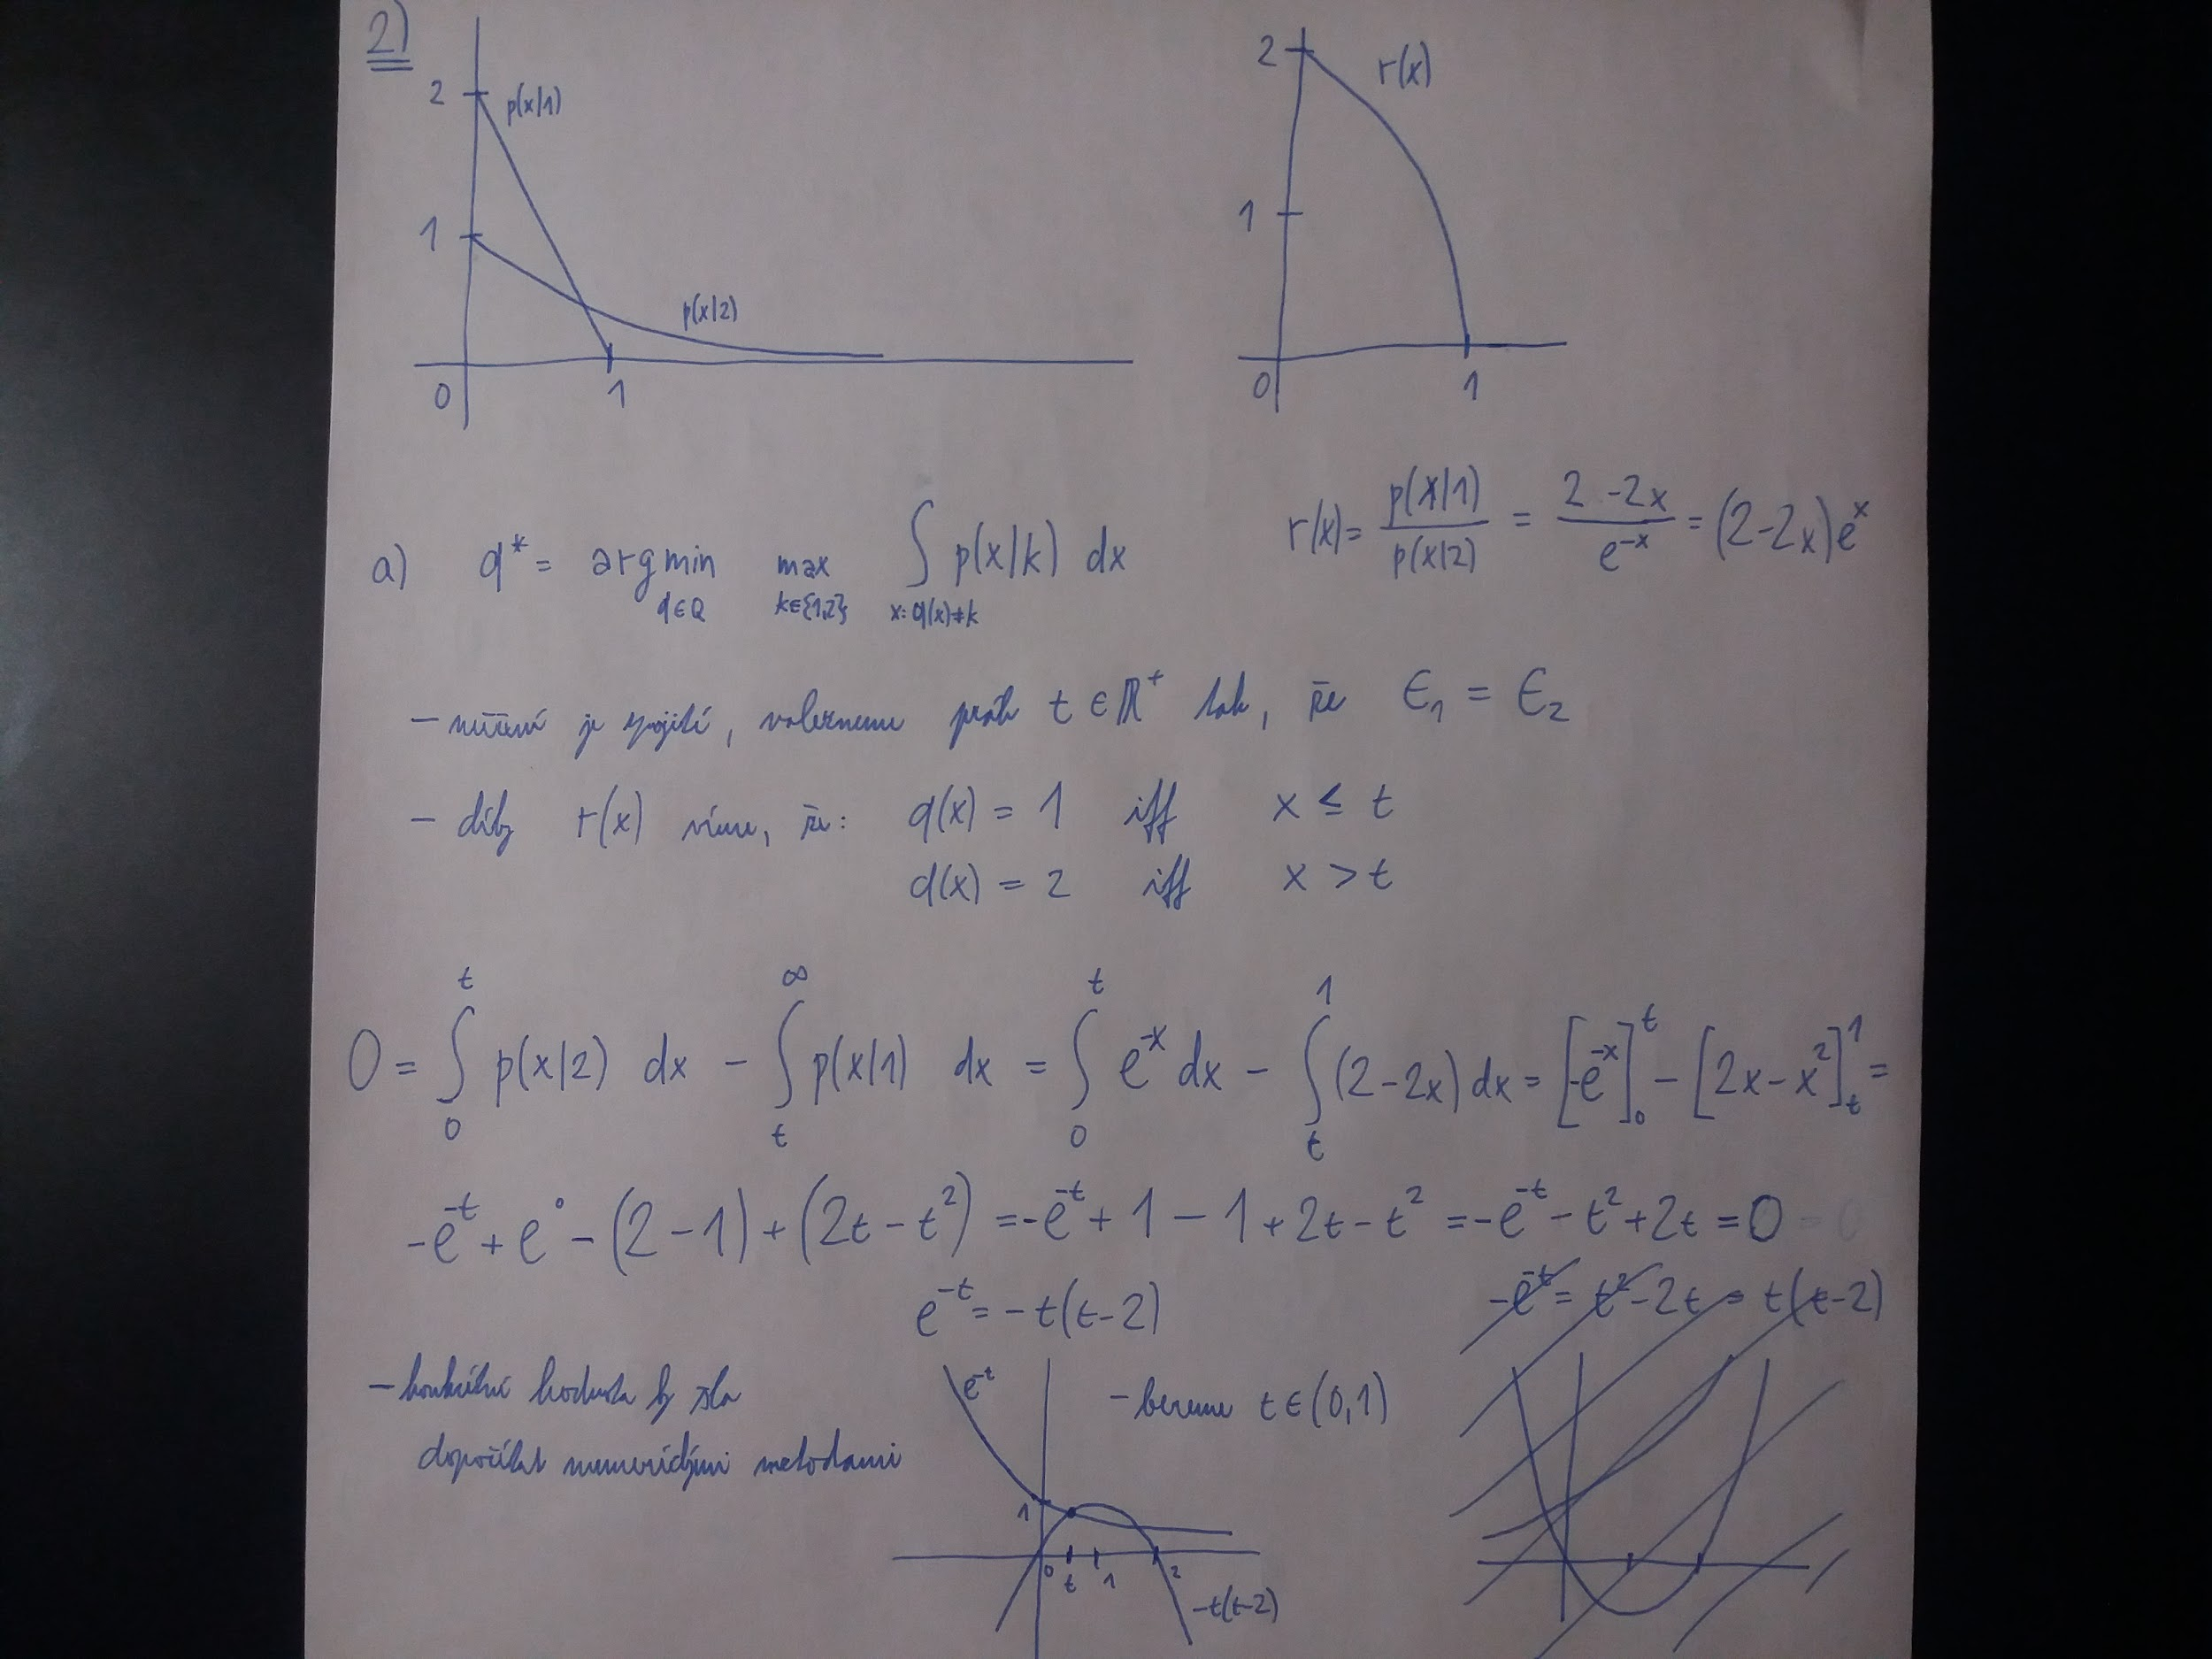 2)
2
p(x|1)
1
p(x|2)
0
1
2
r(x)
1
0
1
a) q* = argmin_{q∈Q} max_{k∈{1,2}} ∫_{x: q(x)≠k} p(x|k) dx
r(x) = p(x|1) / p(x|2) = (2-2x) / e^{-x} = (2-2x)e^x
- měření je spojité, vezmeme práh t ∈ ℝ⁺ tak, že ϵ₁ = ϵ₂
- díky r(x) víme, že: q(x) = 1 iff x ≤ t
q(x) = 2 iff x > t
0 = ∫_0^t p(x|2) dx - ∫_t^∞ p(x|1) dx = ∫_0^t e^{-x} dx - ∫_t^1 (2-2x) dx = [-e^{-x}]_0^t - [2x-x²]_t^1 =
-e^{-t} + e^0 - (2-1) + (2t-t²) = -e^{-t} + 1 - 1 + 2t - t² = -e^{-t} - t² + 2t = 0
e^{-t} = -t(t-2)
-e^{-t} = t² - 2t = t(t-2)
- konkrétní hodnota by šla
dopočítat numerickými metodami
e^{-t}
- bereme t ∈ (0,1)
1
0
t
1
2
-t(t-2)